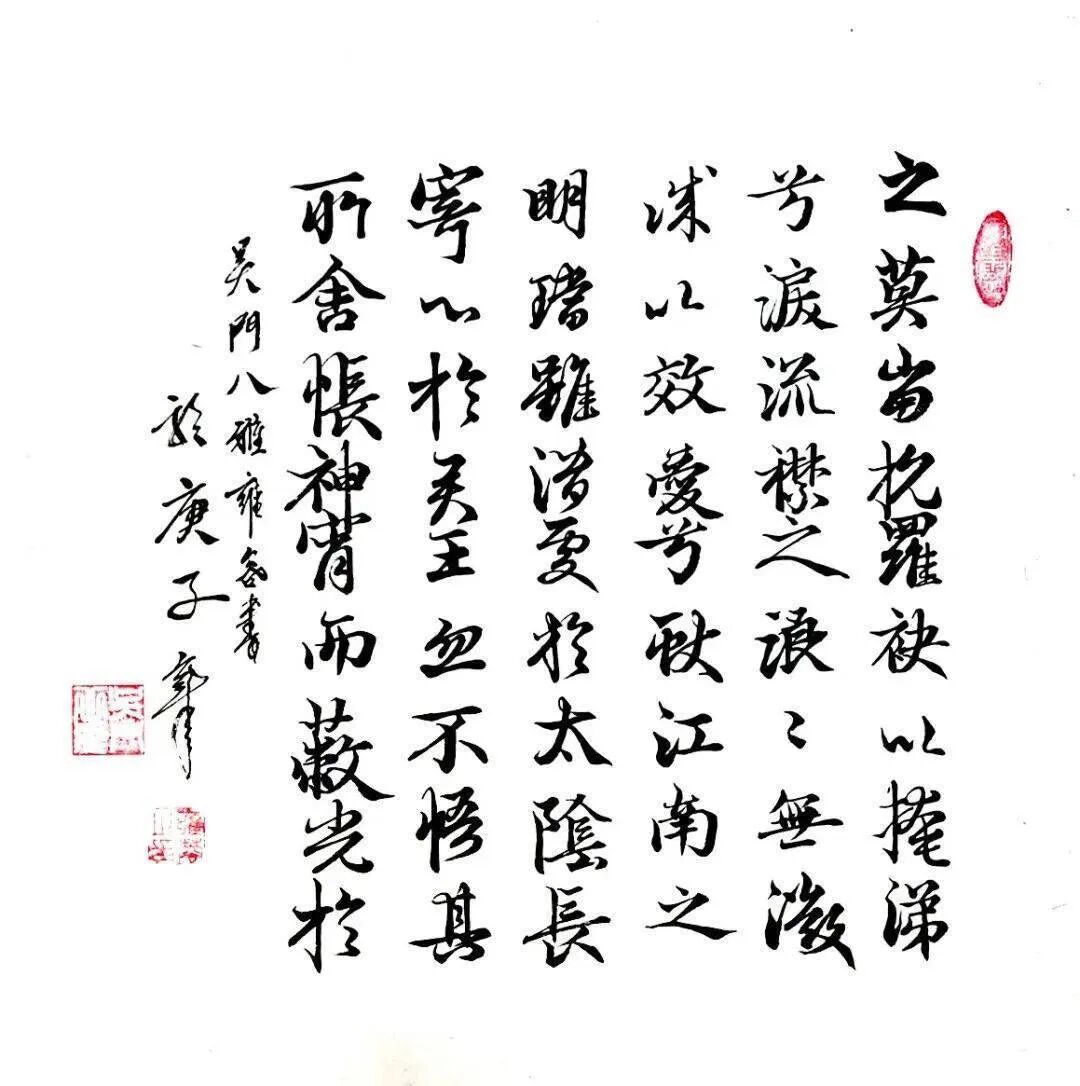 之莫當抗羅袂以掩涕
兮淚流襟之浪〻無微
誠以效愛兮獻江南之
明璫雖潛處於太陰長
寄心於君王忽不悟其
所舍悵神宵而蔽光於
吳門八雅書
於庚子